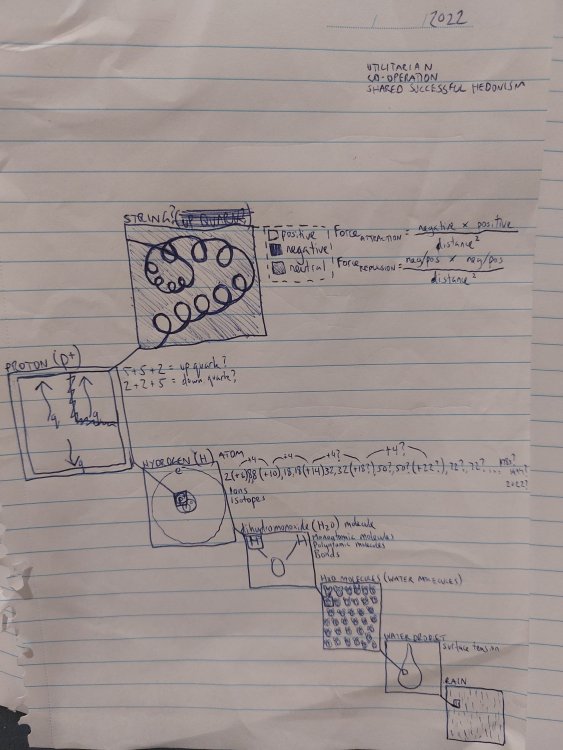 / /2022
UTILITARIAN
CO-OPERATION
SHARED SUCCESSFUL HEDONISM
STRING? (UP QUARK?)
positive
negative
neutral
Force ATTRACTION = negative × positive / distance²
Force REPULSION = neg/pos × neg/pos / distance²
PROTON (P+)
5+5+2 = up quark?
2+2+5 = down quark?
q
q
q
HYDROGEN (H) ATOM
e⁻
P+
+4 +4 +4? +4?
2(+6)8,8(+10),18,18(+14)32,32(+18?),50?,50?(+22?),72?,72?...
Ions
Isotopes
dihydromonoxide (H₂O) molecule
H H
O
Monoatomic molecules
Polyatomic molecules
Bonds
H₂O MOLECULES (WATER MOLECULES)
WATER DROPLET
Surface tension
RAIN